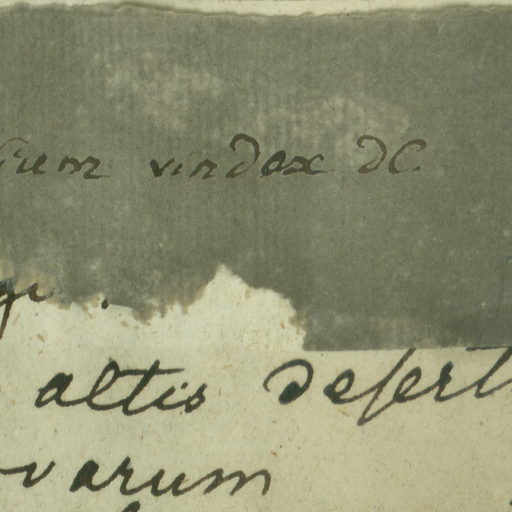 vindex DC.
altis desert
varum